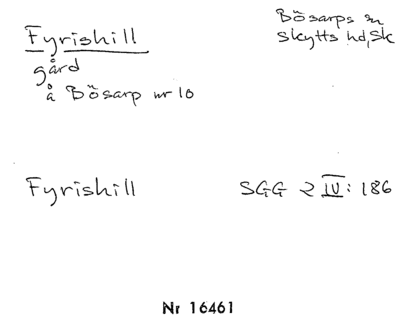 Fyrishill
gård
å Bösarp nr 10
Bösarps sn
Skytts hd, Sk
Fyrishill
SGG 2 IV: 186
Nr 16461